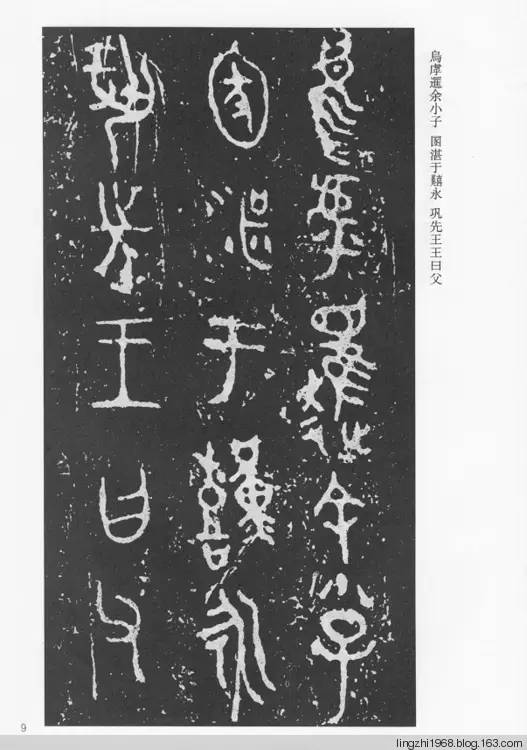 烏虖趯余小子 圂湛于囏永 巩先王王曰父
9
lingzhi1968.blog.163.com